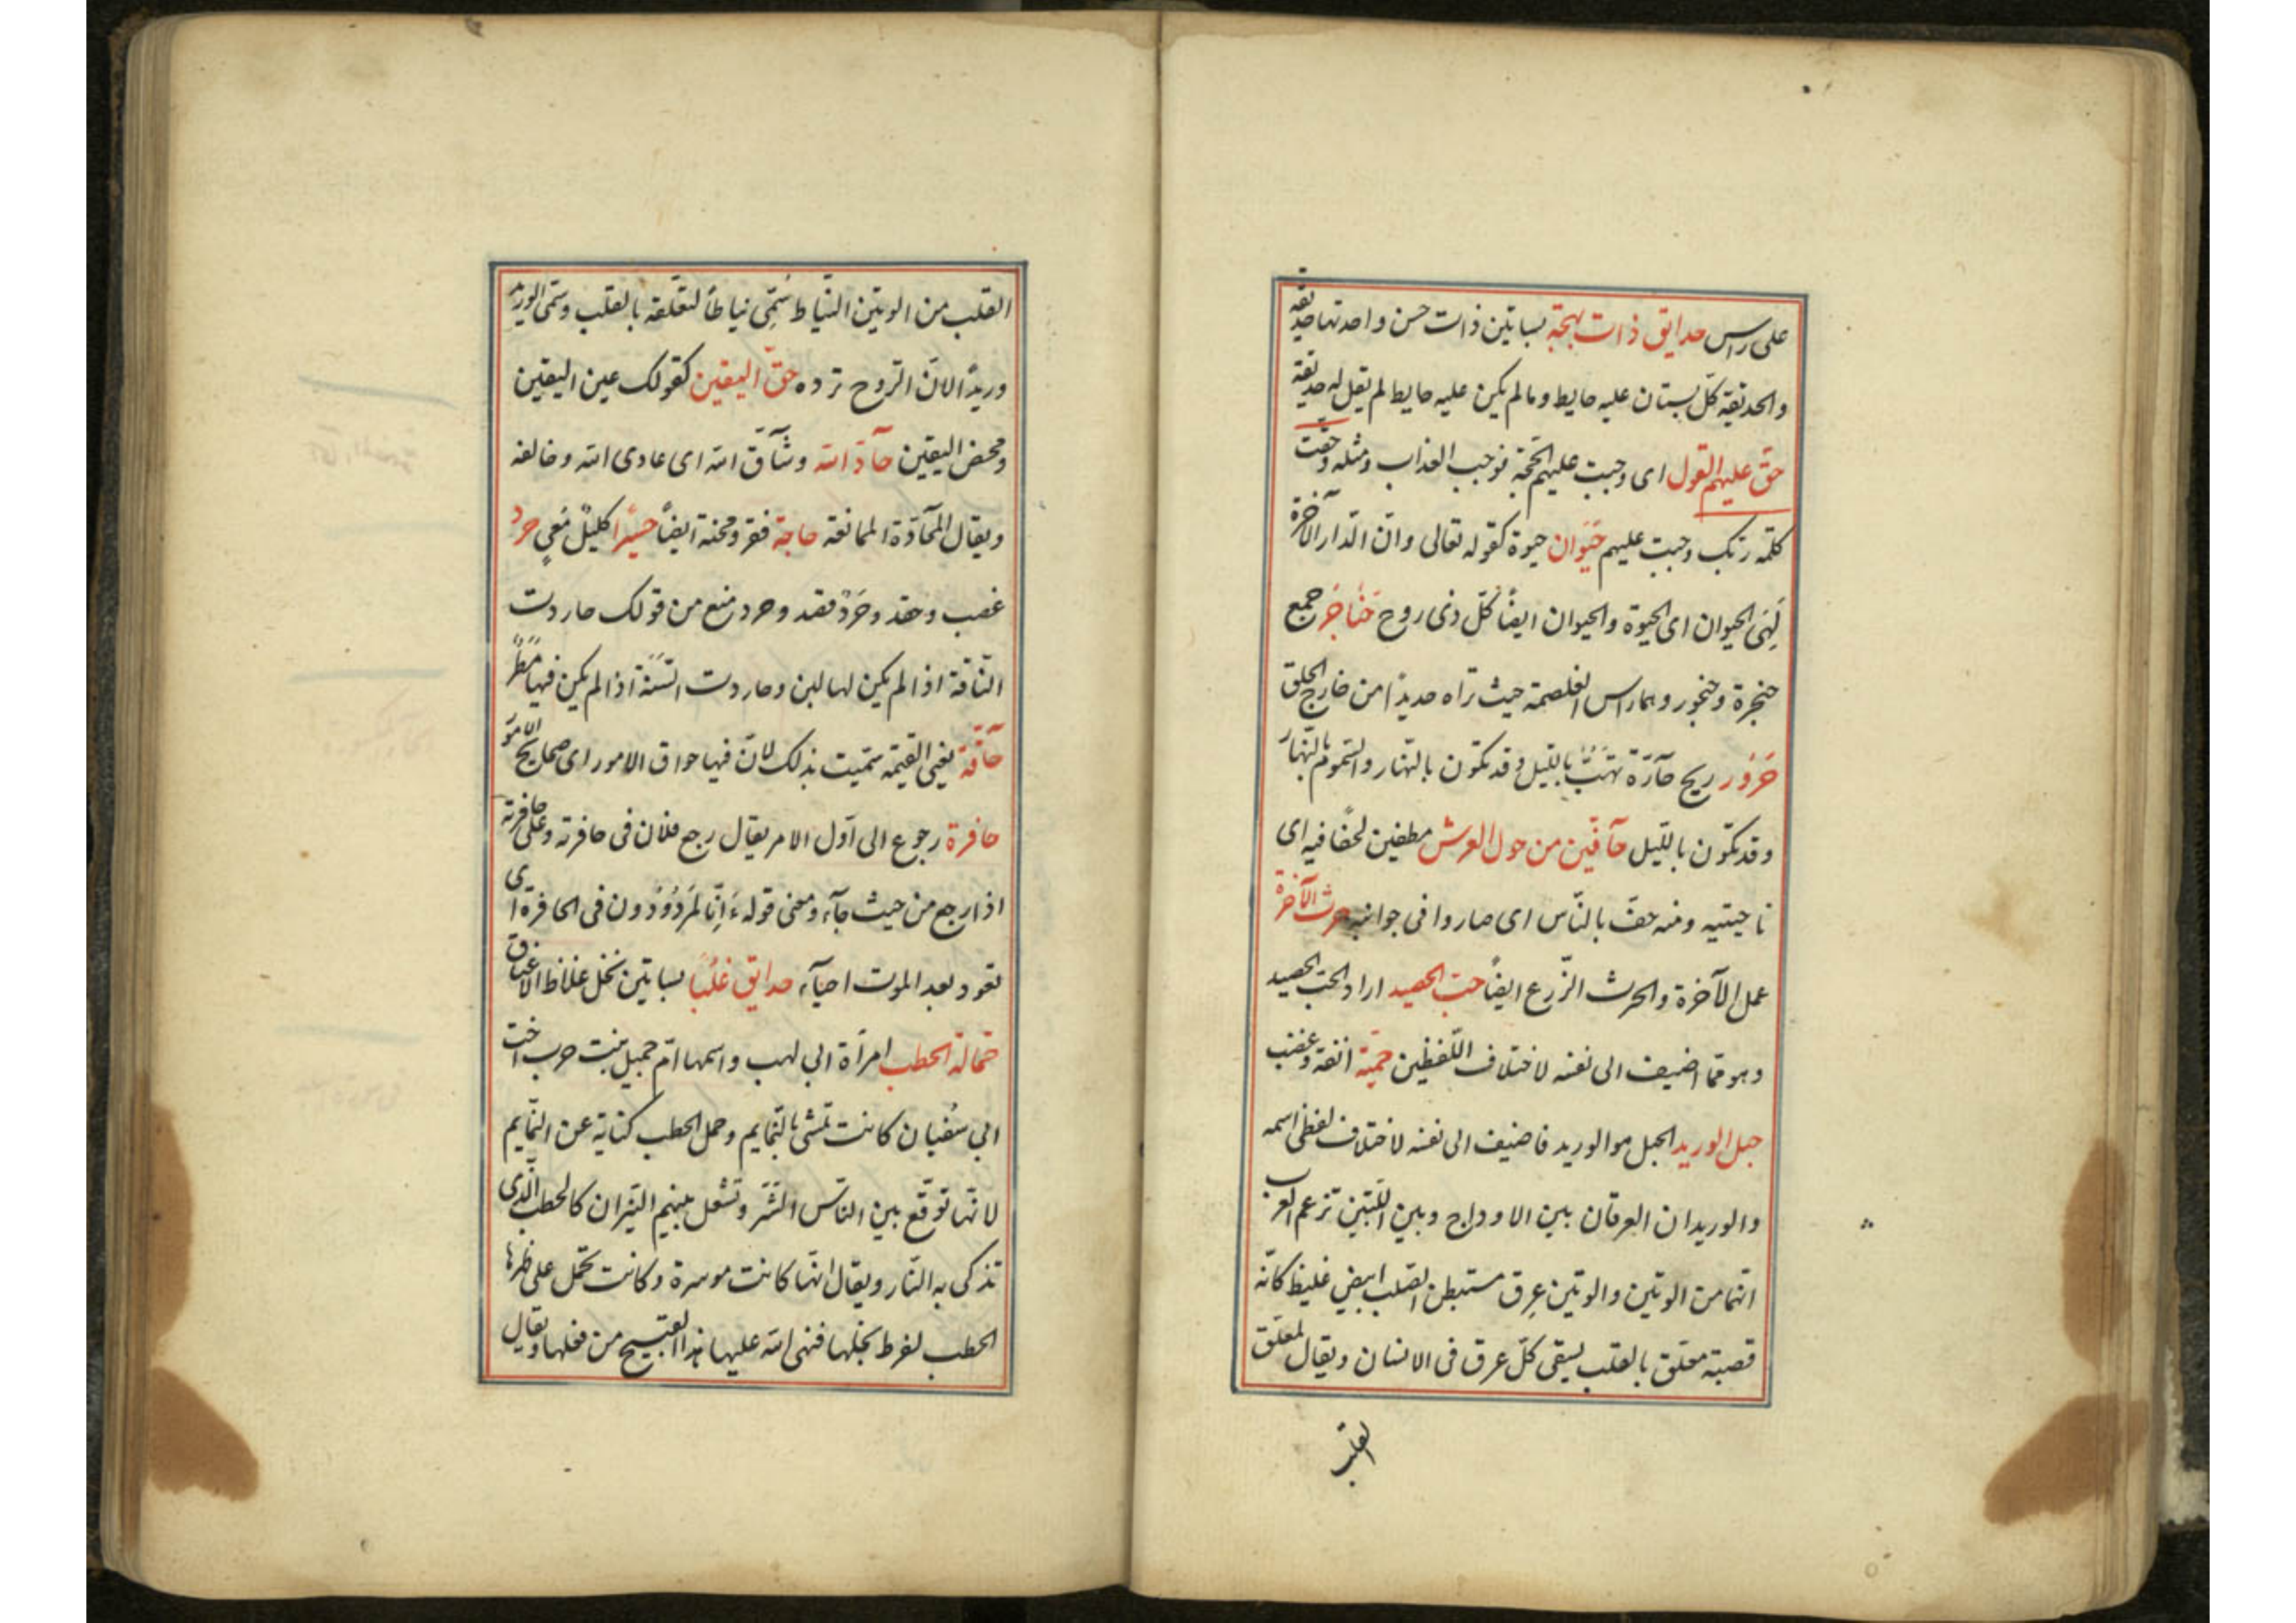 على راس حدايق ذات بهجة بساتين ذات حسن واحدتها حديقة
والحديقة كلّ بستان عليه حايط وما لم يكن عليه حايط لم يقل له حديقة
حقّ عليهم القول اى وجبت عليهم الحجّة فوجب العذاب ومثله وحقّت
كلمة ربّك وجبت عليهم حَيَوان حيوة كقوله تعالى وانّ الدّار الآخرة
لَهِىَ الحيوان اى الحيوة والحيوان ايضًا كلّ ذى روح حَنَاجَر جمع
حنجرة وحنجور وهما راس الغلصمة حيث تراه حديدًا من خارج الحلق
حَرُور ريح حآرّة تهبّ بالليل وقد تكون بالنّهار والسّموم بالنّهار
وقد تكون بالليل حآفّين من حول العرش مطفين لحفافيه اى
ناحيتيه ومنه حفّ بالنّاس اى صاروا فى جوانبه حرث الآخرة
عمل الآخرة والحرث الزّرع ايضًا حبّ الحصيد اراد الحبّ الحصيد
وهو ممّا اضيف الى نفسه لاختلاف اللّفظين حميّة انفة وغضب
حبل الوريد الحبل هو الوريد فاضيف الى نفسه لاختلاف لفظى اسمه
والوريدان العرقان بين الاوداج وبين اللّبتين تزعم العرب
انّهما من الوتين والوتين عِرق مستبطن الصلب ابيض غليظ كانّه
قصبة معلّق بالقلب يسقى كلّ عرق فى الانسان ويقال لمعلّق
القلب
القلب من الوتين النّياط سُمّى نياطًا لتعلّقه بالقلب وسمّى الوريد
وريدًا لانّ الرّوح ترده حقّ اليقين كقولك عين اليقين
ومحض اليقين حآدّ الله وشآقّ الله اى عادى الله وخالفه
ويقال المحآدّة الممانعة حاجة فقر ومحنة ايضًا حسيرًا كليلٌ مَعِي حرد
غضب وحقد وحَرَدٌ قصد وحرد منع من قولك حاردت
النّاقة اذا لم يكن لها لبن وحاردت السّنة اذا لم يكن فيها مَطَرٌ
حآقّة يعنى القيمة سمّيت بذلك لانّ فيها حواق الامور اى صحايح الامور
حافرة رجوع الى اوّل الامر يقال رجع فلان فى حافرته وعلى حافرته
اذا رجع من حيث جآء ومعنى قوله ءَاِنّا لمَرْدُوْدُون فى الحافرة اى
نعود بعد الموت احيآء حدايق غُلْبًا بساتين نخل غلاظ الاعناق
حمّالة الحطب امرأة ابي لهب واسمها امّ جميل بنت حرب اخت
ابي سُفيان كانت تمشى بالنّمايم وحمل الحطب كناية عن النّمايم
لانّها توقع بين النّاس الشّرّ وتشعل بينهم النّيران كالحطب الّذى
تذكى به النّار ويقال انّها كانت موسرة وكانت تحمل على ظهرها
الحطب لفرط بخلها فنهى الله عليها هذا القبيح من فعلها ويقال